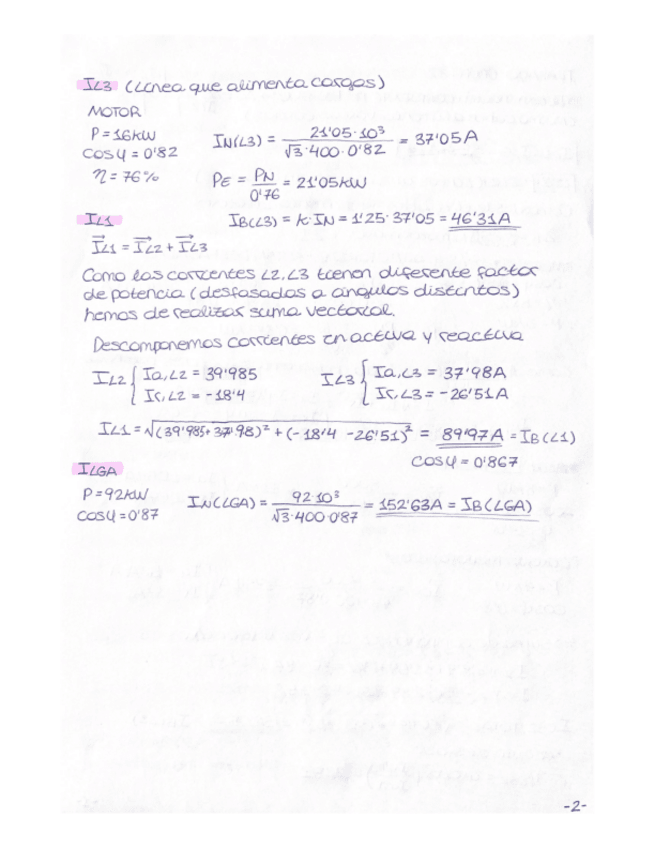 IL3 (Línea que alimenta cargas)
MOTOR
P = 16kW
cos φ = 0'82
η = 76%
IN(L3) = 21'05·10³ / √3·400·0'82 = 37'05A
PE = PN / 0'76 = 21'05kW
IB(L3) = k·IN = 1'25·37'05 = 46'31A
IL1
IL1 = IL2 + IL3
Como las corrientes L2, L3 tienen diferente factor
de potencia (desfasadas a ángulos distintos)
hemos de realizar suma vectorial.
Descomponemos corrientes en activa y reactiva
IL2 { Ia,L2 = 39'985
Ir,L2 = -18'4
IL3 { Ia,L3 = 37'98A
Ir,L3 = -26'51A
IL1 = √(39'985+37'98)² + (-18'4 -26'51)² = 89'97A = IB(L1)
cos φ = 0'867
ILGA
P = 92kW
cos φ = 0'87
IN(LGA) = 92·10³ / √3·400·0'87 = 152'63A = IB(LGA)
-2-